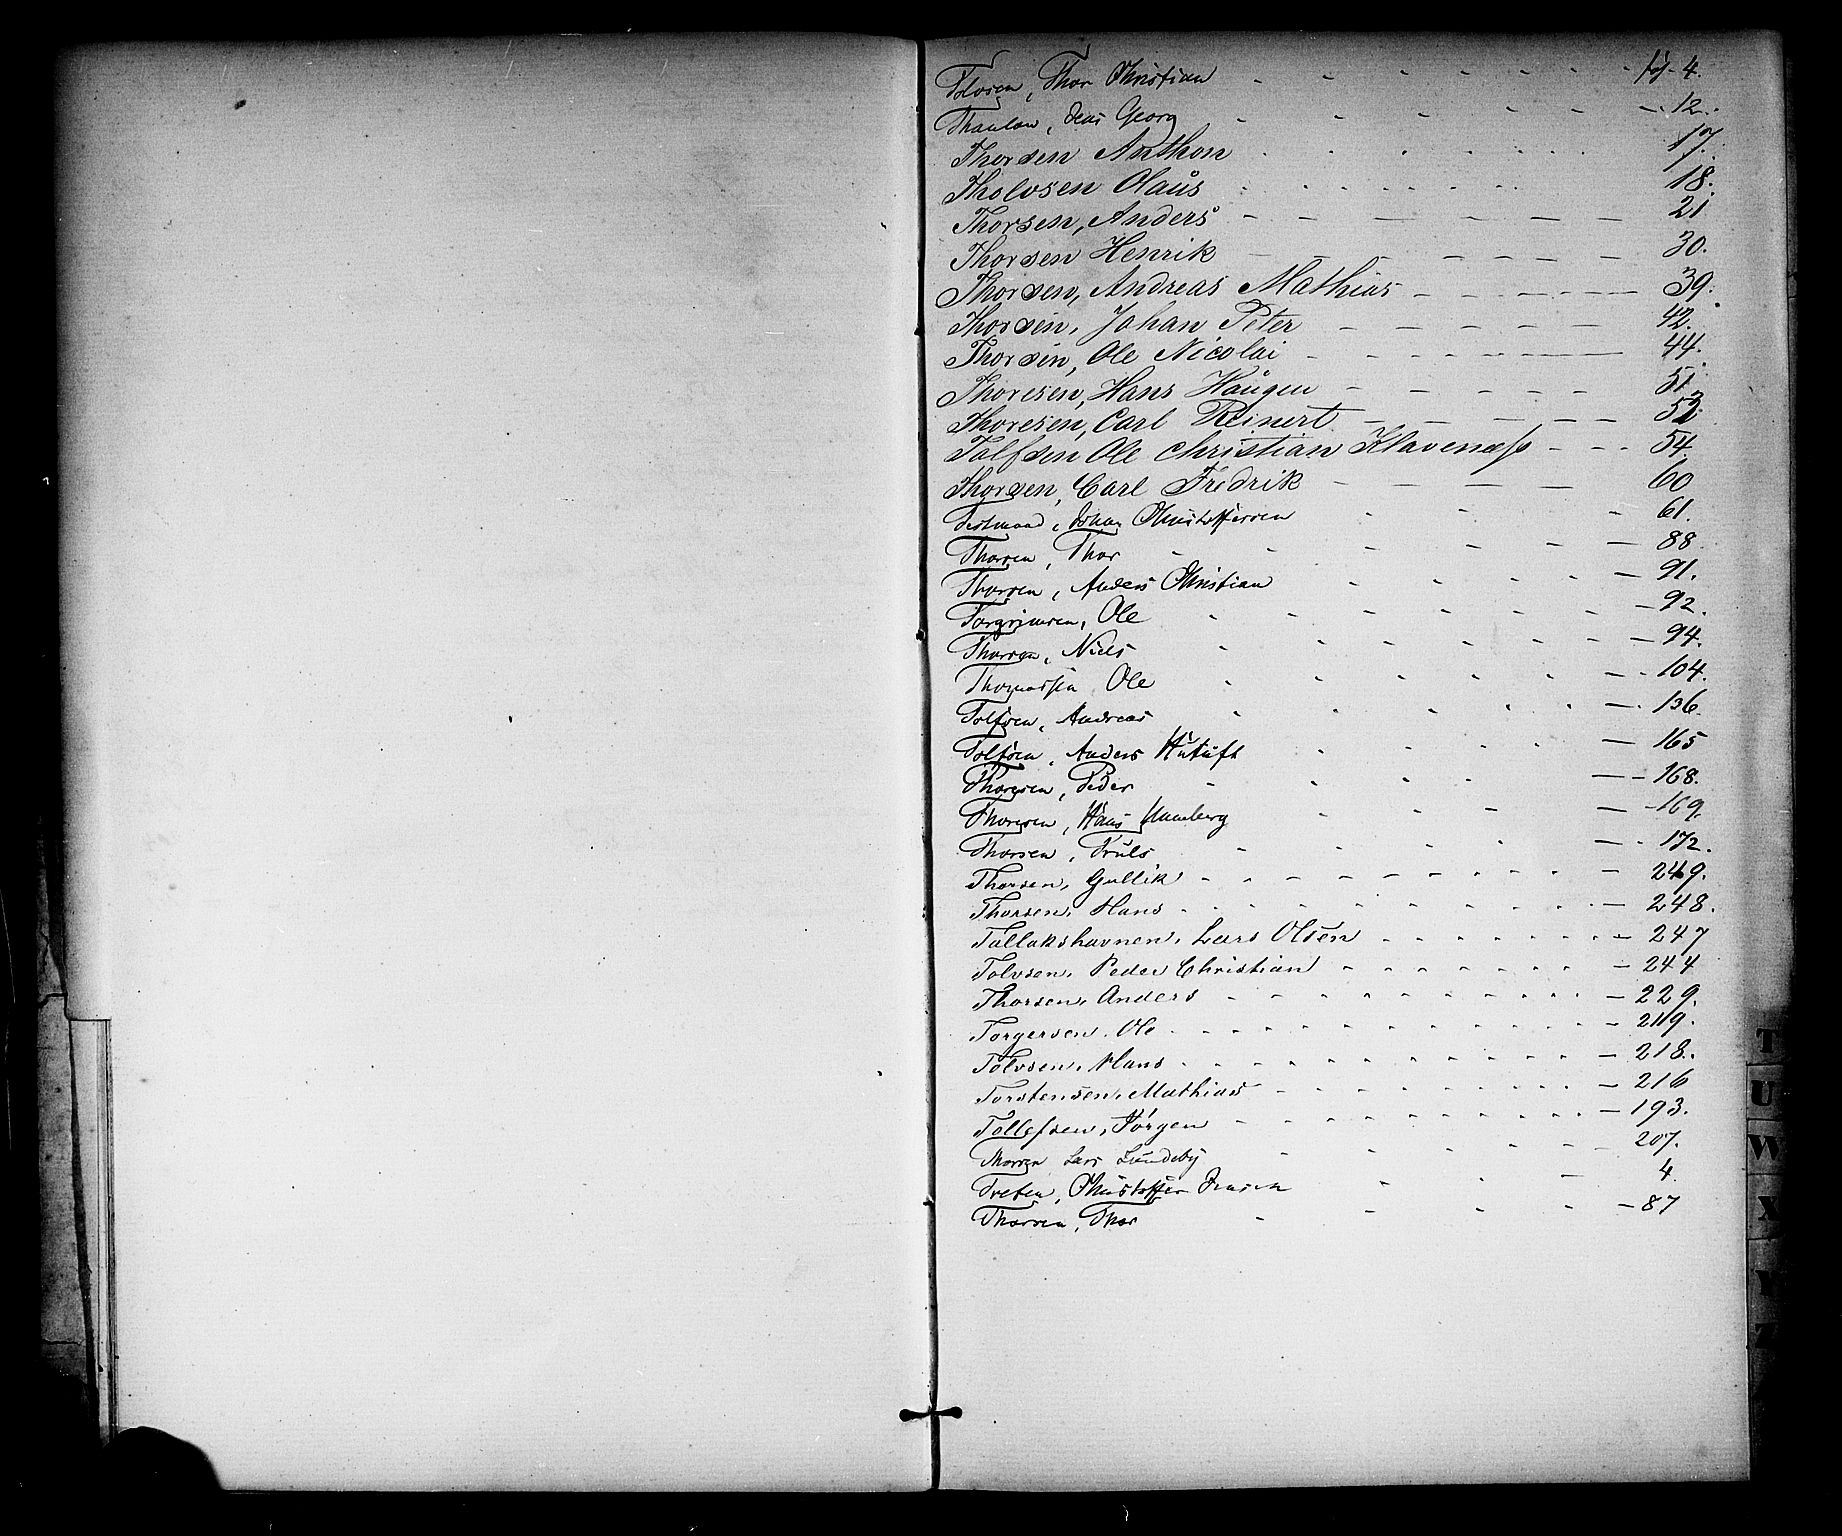 Tolvsen, Thor Christian - - - - - - - 4.
Thaulow, Jens Georg - - - - - - 12.
Thorsen Anthon - - - - - - 17.
Tholvsen Olaus - - - - - - 18.
Thorsen, Anders - - - - - - 21
Thorsen Henrik - - - - - - 30.
Thorsen, Andreas Mathias - - - - - 39.
Thorsen, Johan Peter - - - - - 42.
Thorsen, Ole Nicolai - - - - - 44.
Thoresen, Hans Haugen - - - - - 51.
Thoresen, Carl Reinert - - - - 53
Tolfsen Ole Christian Klavenæss - - - 54.
Thorsen, Carl Fredrik - - - - 60
Johan Christoffersen - - - 61.
Thorsen, Thor - - - - - - 88
Thorsen, Anders Christian - - - - - 91.
Torgrimsen, Ole - - - - - - - 92.
Thorsen, Niels - - - - - - 94.
Thomassen Ole - - - - - - 104.
Tolfsen, Andreas - - - - - 136.
Tolfsen, Anders - - - - 165
Thoresen, Peder - - - - 168.
Thoresen, Hans - - - - 169.
Thorsen, Truls - - - - - 172.
Thorsen, Gullik - - - - - - - - - 249.
Thorsen, Hans - - - - - - - - - 248.
Tallakshavnen, Lars Olsen - - - - - - - 247
Tolvsen, Peder Christian - - - - - - - 244
Thorsen, Anders - - - - - - - - - 229.
Torgersen, Ole - - - - - - - - - - 219.
Tolvsen, Hans - - - - - - - - - - 218.
Torstensen, Mathias - - - - - - - - 216
Tollefsen, Jörgen - - - - - - - - 193.
Thorsen Lars Lundeby - - - - - 207.
Christoffer Jensen - - - 4.
Thorsen, Thor - - - - - 87
T
U
W
X
Y
Z